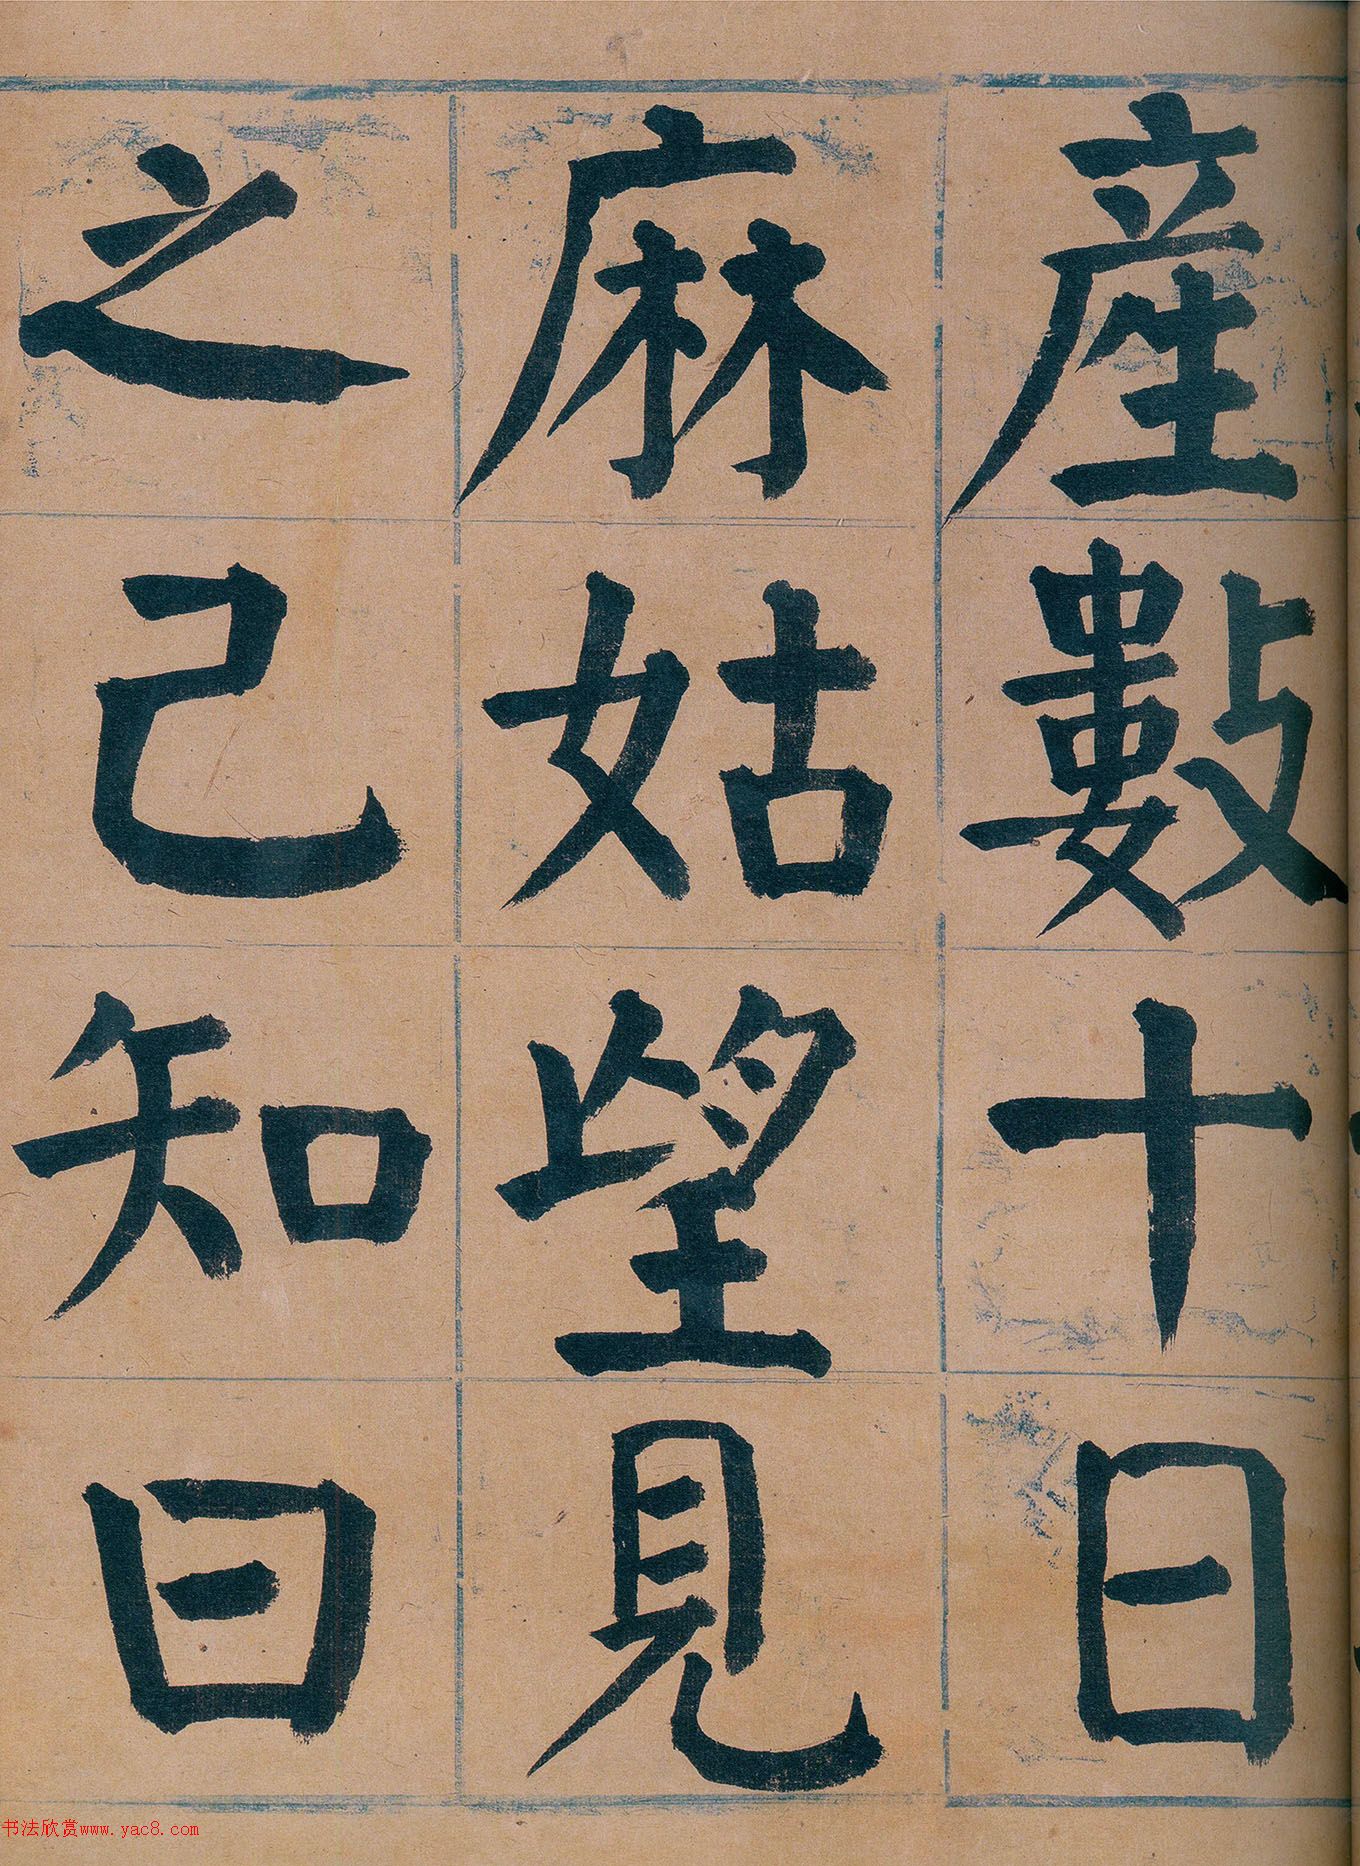 產數十日
麻姑望見
之己知曰
书法欣赏www.yac8.com